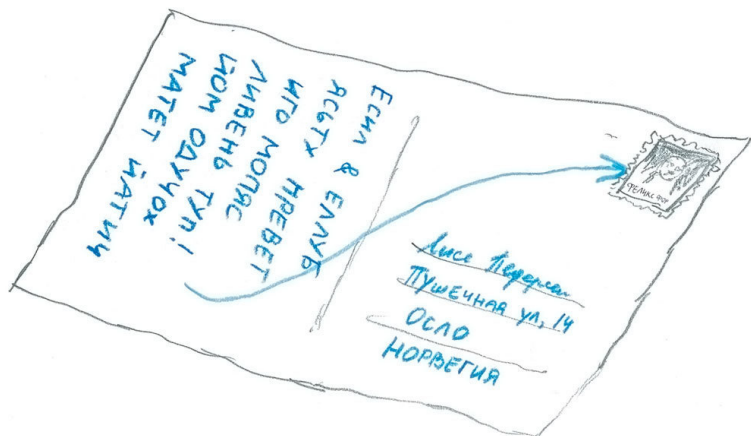 Есил & еллуб
ясьтх превет
иго моляс
ливень туп!
йом одучох
матет йатич
Лисе Педерсен
Пушечная ул, 14
Осло
Норвегия